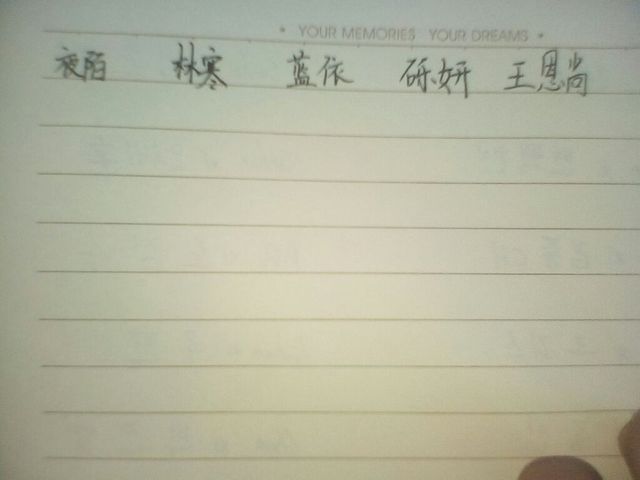 • YOUR MEMORIES YOUR DREAMS •
夜陌 林寒 蓝依 砾妍 王恩尚